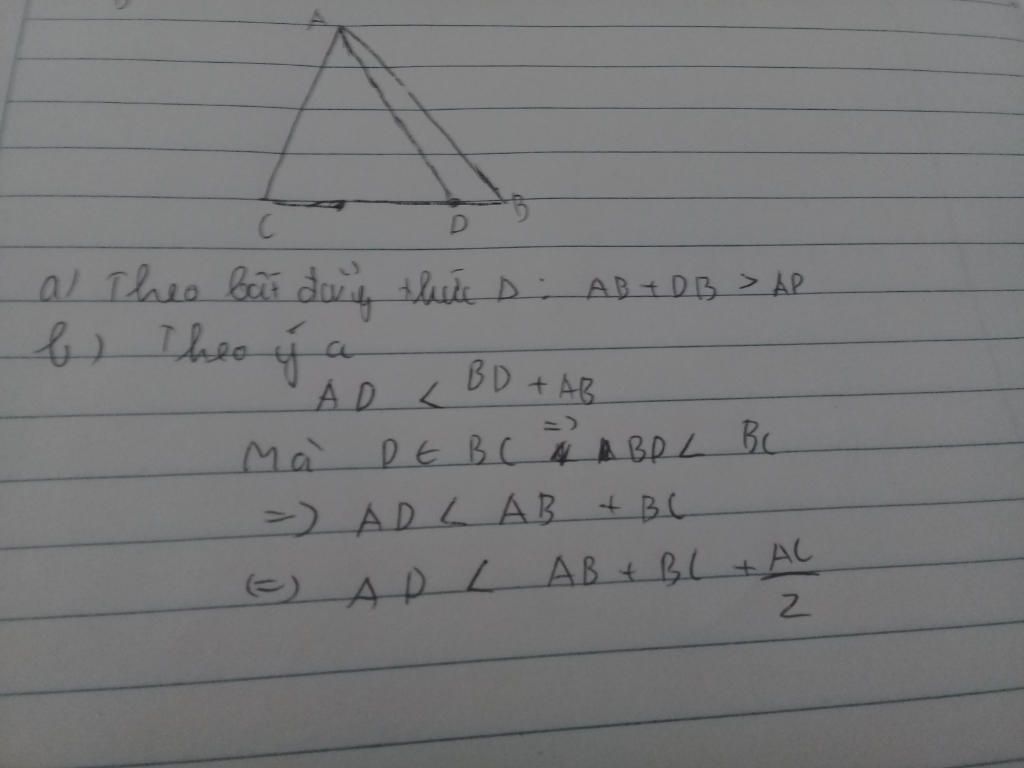 A
C D B
a) Theo bất đẳng thức Δ: AB + DB > AD
b) Theo ý a
AD < BD + AB
Mà D ∈ BC => BD < BC
=> AD < AB + BC
(=) AD < AB + BC + AC/2